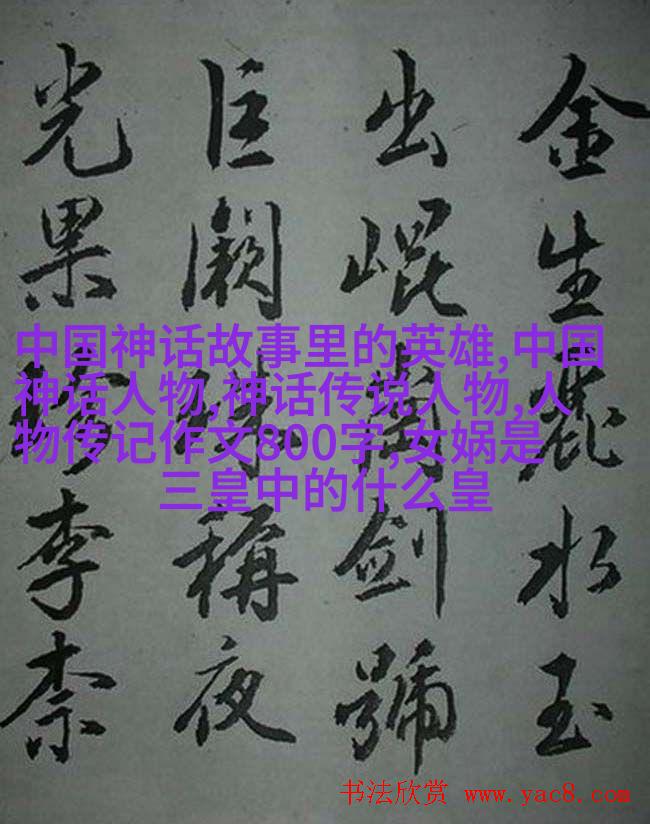 金生麗水玉
出崐岡劍號
巨闕珠稱夜
光果珍李柰
中国神话故事里的英雄,中国
神话人物,神话传说人物,人
物传记作文800字,女娲是
三皇中的什么皇
书法欣赏 www.yac8.com